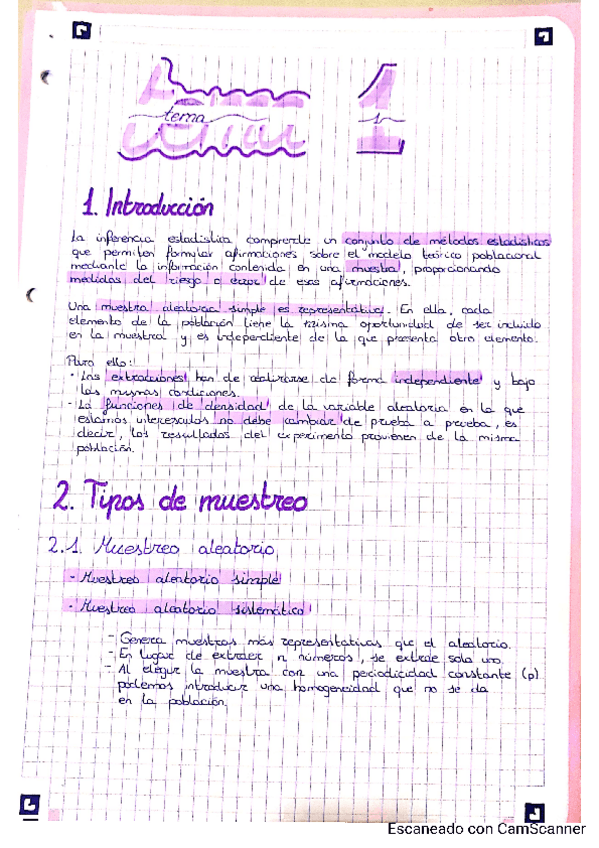 tema 1
1. Introducción
La inferencia estadística comprende un conjunto de métodos estadísticos
que permiten formular afirmaciones sobre el modelo teórico poblacional
mediante la información contenida en una muestra, proporcionando
medidas del riesgo o error de esas afirmaciones.
Una muestra aleatoria simple es representativa. En ella, cada
elemento de la población tiene la misma oportunidad de ser incluido
en la muestra y es independiente de la que presenta otro elemento.
Para ello:
· Las extracciones han de realizarse de forma independiente y bajo
las mismas condiciones.
- La funciones de densidad de la variable aleatoria en la que
estamos interesados no debe cambiar de prueba a prueba, es
decir, los resultados del experimento provienen de la misma
población.
2. Tipos de muestreo
2.1. Muestreo aleatorio
- Muestreo aleatorio simple
· Muestreo aleatorio sistemático
- Genera muestras más representativas que el aleatorio.
- En lugar de extraer n números, se extrae solo uno.
- Al elegir la muestra con una periodicidad constante (p)
podemos introducir una homogeneidad que no se da
en la población.
Escaneado con CamScanner